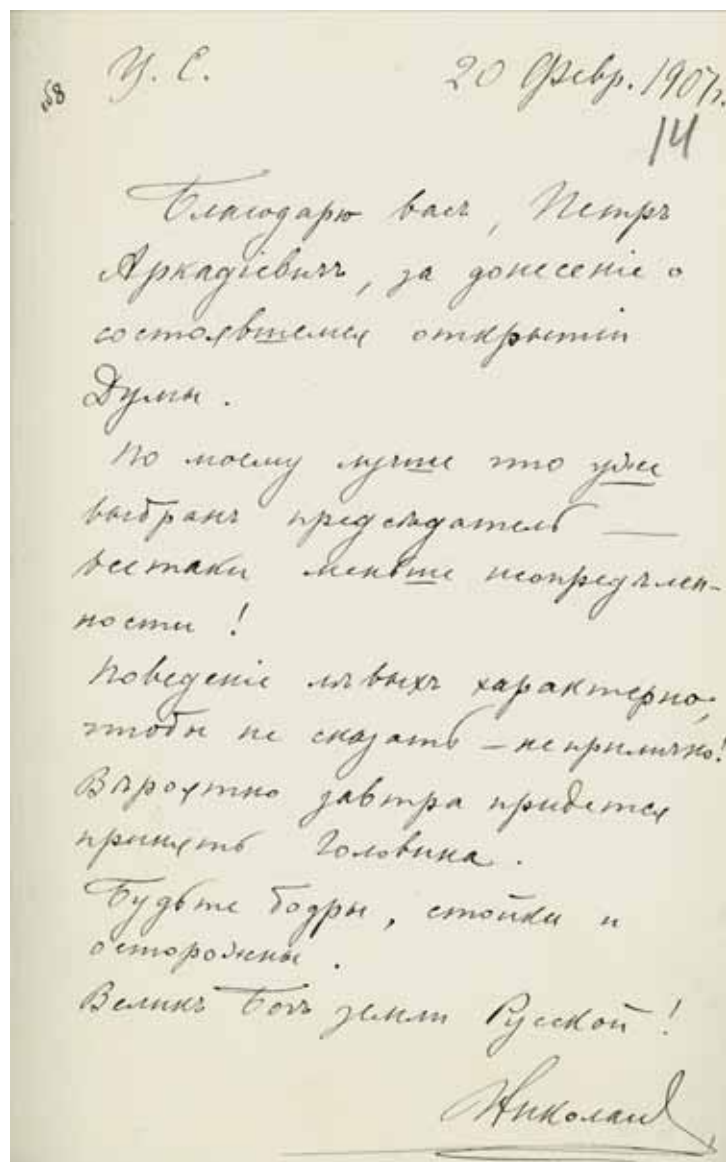 Ц. С. 20 Февр. 1907 г.
14
Благодарю васъ, Петръ
Аркадіевичъ, за донесеніе о
состоявшемся открытіи
Думы.
По моему лучше что уже
выбранъ предсѣдатель —
всетаки меньше неопредѣлен-
ности!
Поведеніе лѣвыхъ характерно,
чтобы не сказать — неприлично!
Вѣроятно завтра придется
принять Головина.
Будьте бодры, стойки и
осторожны.
Великъ Богъ земли Русской!
Николай